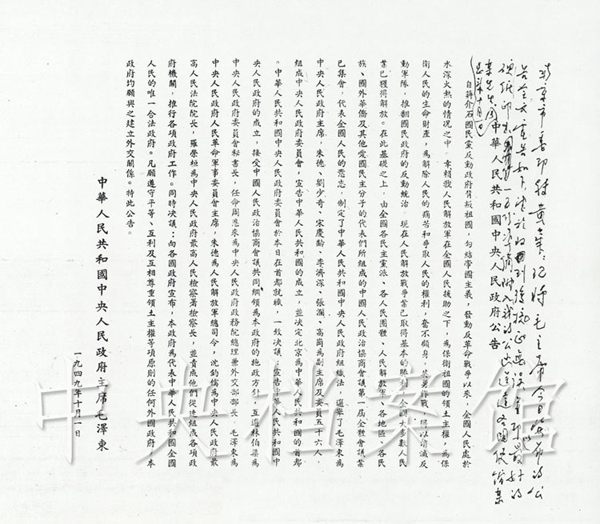 中華人民共和國中央人民政府公告
自蔣介石國民黨反動政府背叛祖國,勾結帝國主義,發動反革命戰爭以來,全國人民處於
水深火熱的情況之中。幸賴我人民解放軍在全國人民援助之下,為保衛祖國的領土主權,為保
衛人民的生命財產,為解除人民的痛苦和爭取人民的權利,奮不顧身,英勇作戰,得以消滅反
動軍隊,推翻國民政府的反動統治。現在人民解放戰爭業已取得基本的勝利,全國大多數人民
業已獲得解放。在此基礎之上,由全國各民主黨派、各人民團體、人民解放軍、各地區、各民
族、國外華僑及其他愛國民主分子的代表們所組成的中國人民政治協商會議第一屆全體會議業
已集會,代表全國人民的意志,制定了中華人民共和國中央人民政府組織法,選舉了毛澤東為
中央人民政府主席,朱德、劉少奇、宋慶齡、李濟深、張瀾、高崗為副主席及委員五十六人,
組成中央人民政府委員會,宣告中華人民共和國的成立,並決定北京為中華人民共和國的首都
。中華人民共和國中央人民政府委員會於本日在首都就職,一致決議:宣告中華人民共和國中
央人民政府的成立,接受中國人民政治協商會議共同綱領為本政府的施政方針,互選林伯渠為
中央人民政府委員會秘書長,任命周恩來為中央人民政府政務院總理兼外交部部長,毛澤東為
中央人民政府人民革命軍事委員會主席,朱德為人民解放軍總司令,沈鈞儒為中央人民政府最
高人民法院院長,羅榮桓為中央人民政府最高人民檢察署檢察長,並責成他們從速組成各項政
府機關,推行各項政府工作。同時決議:向各國政府宣布,本政府為代表中華人民共和國全國
人民的唯一合法政府。凡願遵守平等、互利及互相尊重領土主權等項原則的任何外國政府,本
政府均願與之建立外交關係。特此公告。
中華人民共和國中央人民政府主席 毛澤東
一九四九年十月一日
中央檔案館